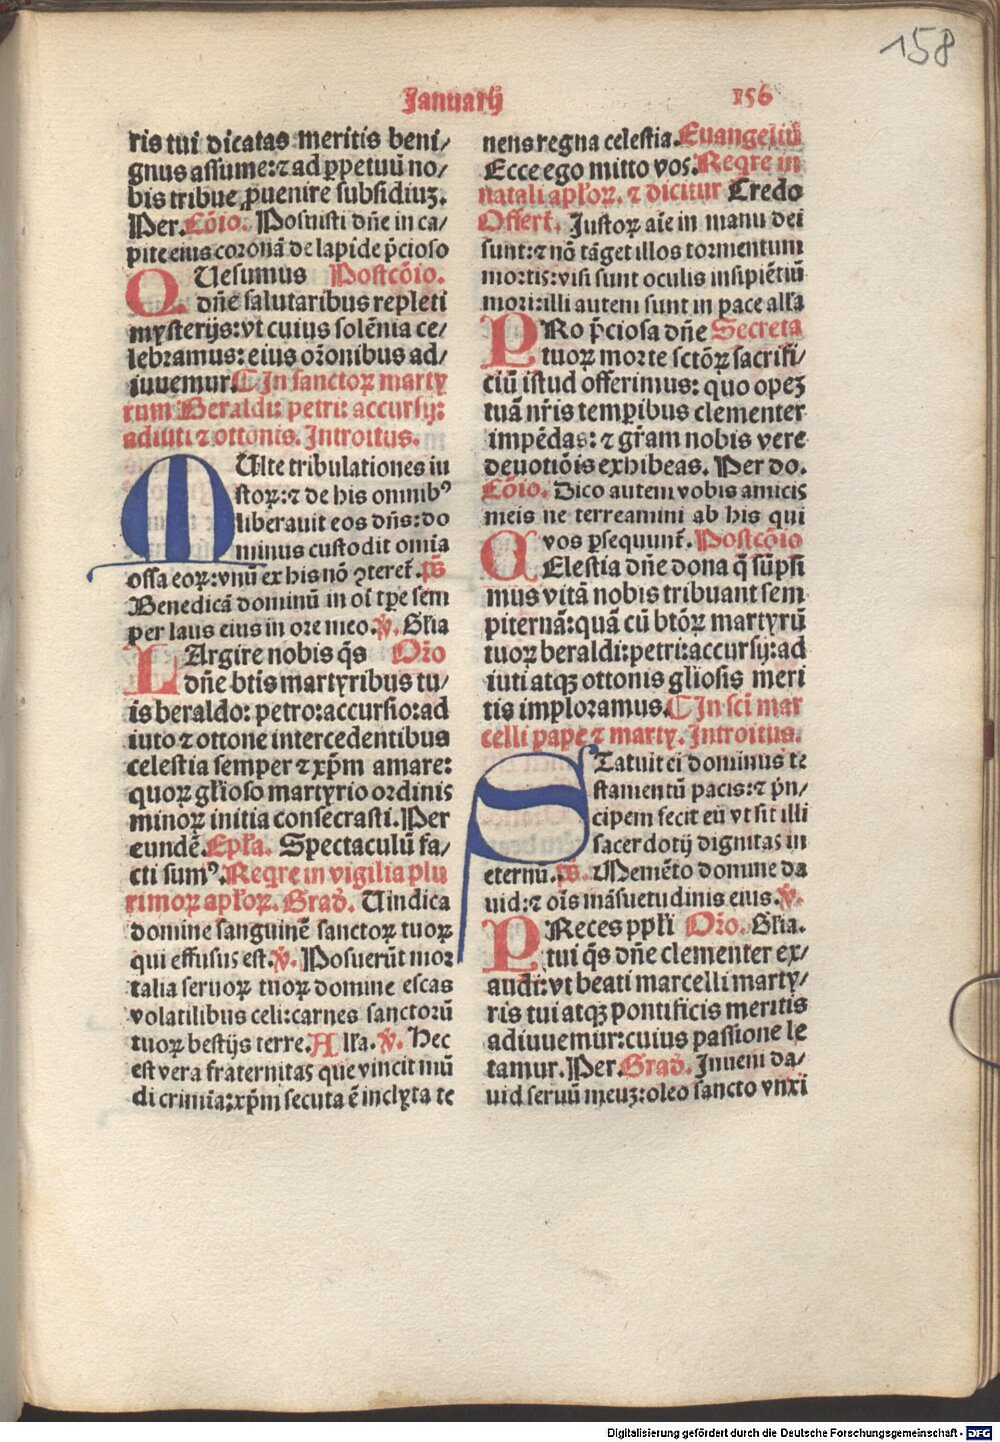 158
Januarij
156
ris tui dicatas meritis beni/
gnus assume: ⁊ ad ꝑpetuū no/
bis tribue ꝓuenire subsidiuꝫ.
Per. Cōio. Posuisti dn̄e in ca/
pite eius coronā de lapide p̄cioso
QUesumus Postcōio.
dn̄e salutaribus repleti
mysterijs: vt cuius solēnia ce/
lebramus: eius or̄onibus ad/
iuuemur. ⸿ In sanctoꝝ marty
rum Beraldi: petri: accursij:
adiuti ⁊ ottonis. Introitus.
MUlte tribulationes iu
stoꝝ: ⁊ de his omnibꝰ
liberauit eos dn̄s: do
minus custodit omīa
ossa eoꝝ: vnū ex his nō ꝯteret̄. p̄s
Benedicā dominū in oī tp̄e sem
per laus eius in ore meo. ℣. Gl̄ia
LArgire nobis q̄s Or̄o
dn̄e bt̄is martyribus tu/
is beraldo: petro: accursio: ad
iuto ⁊ ottone intercedentibus
celestia semper ⁊ xp̄m amare:
quoꝝ gl̄ioso martyrio ordinis
minoꝝ initia consecrasti. Per
eundē. Epl̄a. Spectaculū fa/
cti sumꝰ. Reqre in vigilia plu
rimoꝝ apl̄oꝝ. Grad̄. Uindica
domine sanguinē sanctoꝝ tuoꝝ
qui effusus est. ℣. Posuerūt mor
talia seruoꝝ tuoꝝ domine escas
volatilibus celi: carnes sanctorū
tuoꝝ bestijs terre. All̄a. ℣. Hec
est vera fraternitas que vincit mū
di crimīa: xp̄m secuta ē inclyta te
nens regna celestia. Euangeliū
Ecce ego mitto vos. Reqre in
natali apl̄oꝝ. ⁊ dicitur Credo
Offert̄. Justoꝝ aīe in manu dei
sunt: ⁊ nō tāget illos tormentum
mortis: visi sunt oculis insipiētiū
mori: illi autem sunt in pace all̄a
PRo p̄ciosa dn̄e Secreta
tuoꝝ morte sctōꝝ sacrifi/
ciū istud offerimus: quo opeꝫ
tuā nr̄is temꝑibus clementer
impēdas: ⁊ gr̄am nobis vere
deuotiōis exhibeas. Per do.
Cōio. Dico autem vobis amicis
meis ne terreamini ab his qui
vos ꝑsequunt̄. Postcōio
CElestia dn̄e dona q̄ sūpsi
mus vitā nobis tribuant sem
piternā: quā cū btōꝝ martyrū
tuoꝝ beraldi: petri: accursij: ad
iuti atqꝫ ottonis gl̄iosis meri
tis imploramus. ⸿ In sci̅ mar
celli pape ⁊ marty. Introitus.
STatuit ei dominus te
stamentū pacis: ⁊ p̄n/
cipem fecit eū vt sit illi
sacerdotij dignitas in
eternū. p̄s. Memēto domine da
uid: ⁊ oīs māsuetudinis eius. ℣.
PReces ppl̄i Or̄o. Gl̄ia.
tui q̄s dn̄e clementer ex/
audi: vt beati marcelli marty/
ris tui atqꝫ pontificis meritis
adiuuemur: cuius passione le
tamur. Per. Grad̄. Inueni da/
uid seruū meuꝫ: oleo sancto vnxi
Digitalisierung gefördert durch die Deutsche Forschungsgemeinschaft - DFG